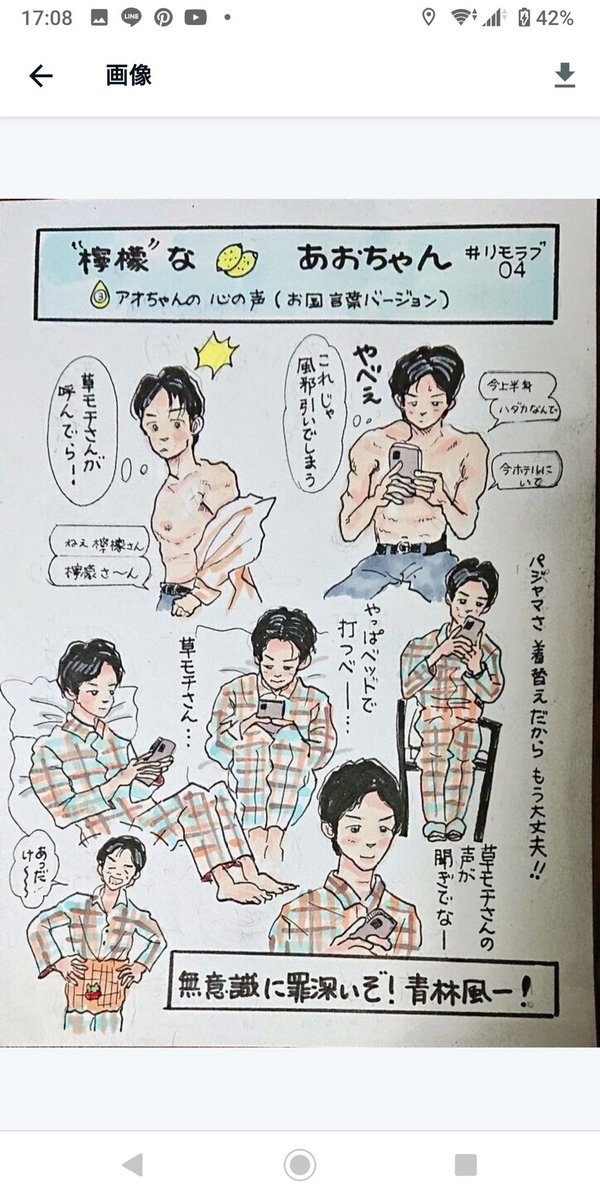 17:08
LINE
42%
画像
"檸檬"な あおちゃん #リモラブ
04
③ アオちゃんの 心の声 (お国言葉バージョン)
草モチさんが
呼んでら!
ねぇ 檸檬さん
檸檬さ〜ん
やべぇ
これじゃ
風邪引いでしまう
今上半身
ハダカなんで
今ホテルに
いで
パジャマさ 着替えだから もう大丈夫!!
やっぱベットで
打つべー…
草モチさん…
草モチさんの
声が
聞ぎでなー
あっだ
け〜〜
無意識に罪深いぞ! 青林風一!